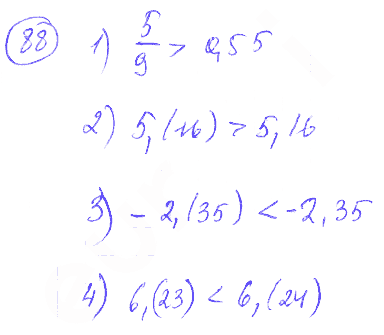 88
1) 5/9 > 0,55
2) 5,(16) > 5,16
3) -2,(35) < -2,35
4) 6,(23) < 6,(24)